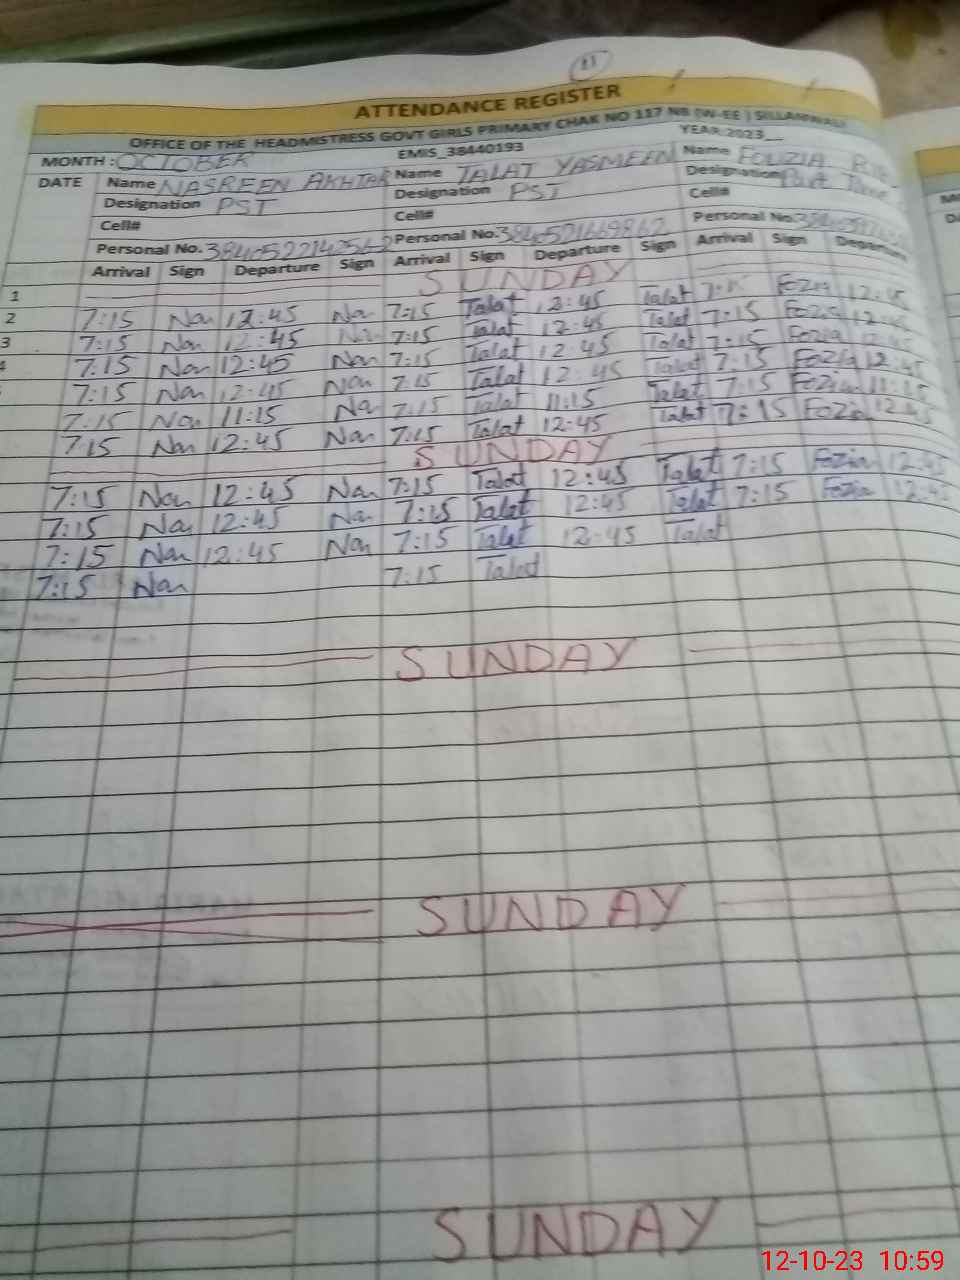 11
ATTENDANCE REGISTER
OFFICE OF THE HEADMISTRESS GOVT GIRLS PRIMARY CHAK NO 117 NB (W-EE ) SILLANWALI
MONTH : OCTOBER EMIS_38440193 YEAR 2023__
DATE Name NASREEN AKHTAR Name TALAT YASMEEN Name FOUZIA
Designation PST Designation PST Designation Part Time
Cell# Cell# Cell#
Personal No. Personal No. Personal No.
Arrival Sign Departure Sign Arrival Sign Departure Sign Arrival Sign Departure
1 SUNDAY
2 7:15 Nan 12:45 Nan 7:15 Talat 12:45 Talat Fozia 12:45
3 7:15 Nan 12:45 Nan 7:15 Talat 12:45 Talat 7:15 Fozia 12:45
4 7:15 Nan 12:45 Nan 7:15 Talat 12:45 Talat 7:15 Fozia 12:45
7:15 Nan 12:45 Nan 7:15 Talat 12:45 Talat 7:15 Fozia 12:45
7:15 Nan 11:15 Nan 7:15 Talat 11:15 Talat 7:15 Fozia 11:15
7:15 Nan 12:45 Nan 7:15 Talat 12:45 Talat 7:15 Fozia 12:45
SUNDAY
7:15 Nan 12:45 Nan 7:15 Talat 12:45 Talat 7:15 Fozia 12:45
7:15 Nan 12:45 Nan 7:15 Talat 12:45 Talat 7:15 Fozia 12:45
7:15 Nan 12:45 Nan 7:15 Talat 12:45 Talat
7:15 Nan 7:15 Talat
SUNDAY
SUNDAY
SUNDAY
12-10-23 10:59